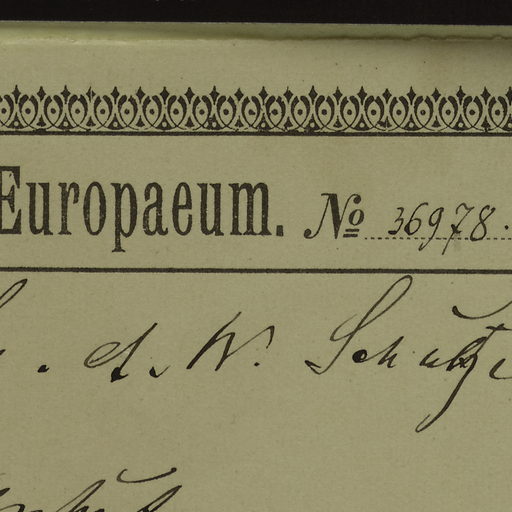 Europaeum. № 36978.
. A. W. Schultze